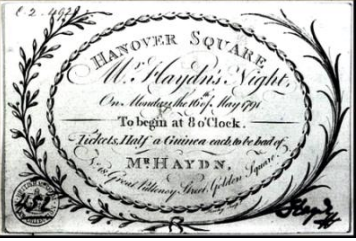 C.2-492
HANOVER SQUARE.
Mr. Haydn's Night,
On Monday, the 16th of May 1791.
To begin at 8 o'Clock.
Tickets, Half a Guinea each, to be had of
Mr. HAYDN,
No. 18, Great Pulteney Street, Golden Square.
Haydn